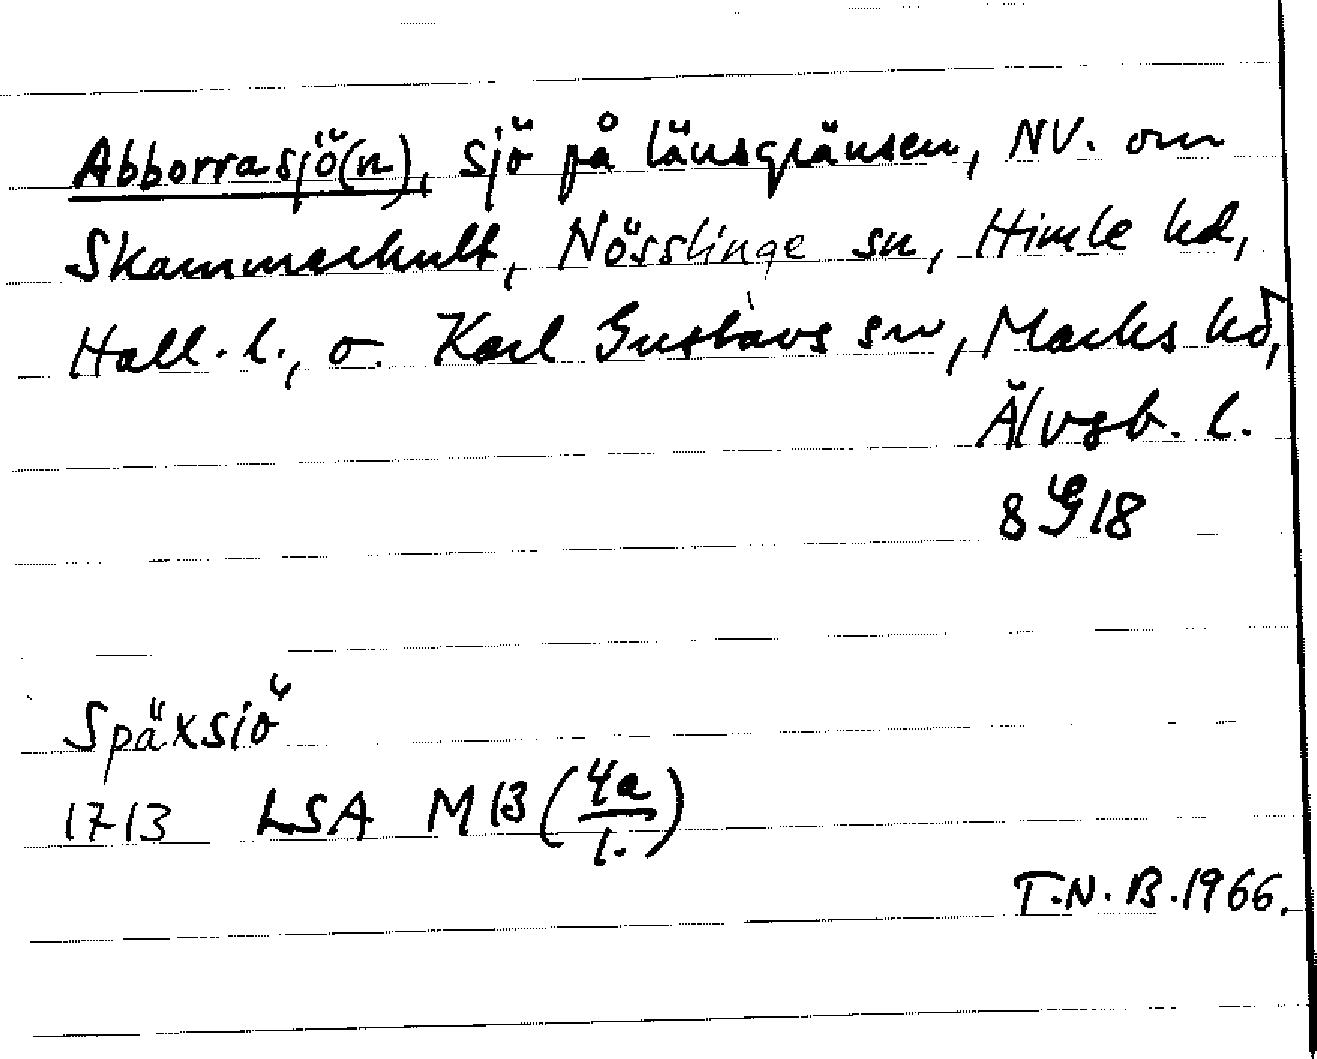 Abborrasjö(n), sjö på länsgränsen, NV. om
Skammerhult, Nösslinge sn, Himle hd,
Hall. l., o. Karl Gustavs sn, Marks hd,
Älvsb. l.
8918
Späxsiö
1713 LSA M13 (4a/1.)
T.N.B. 1966.